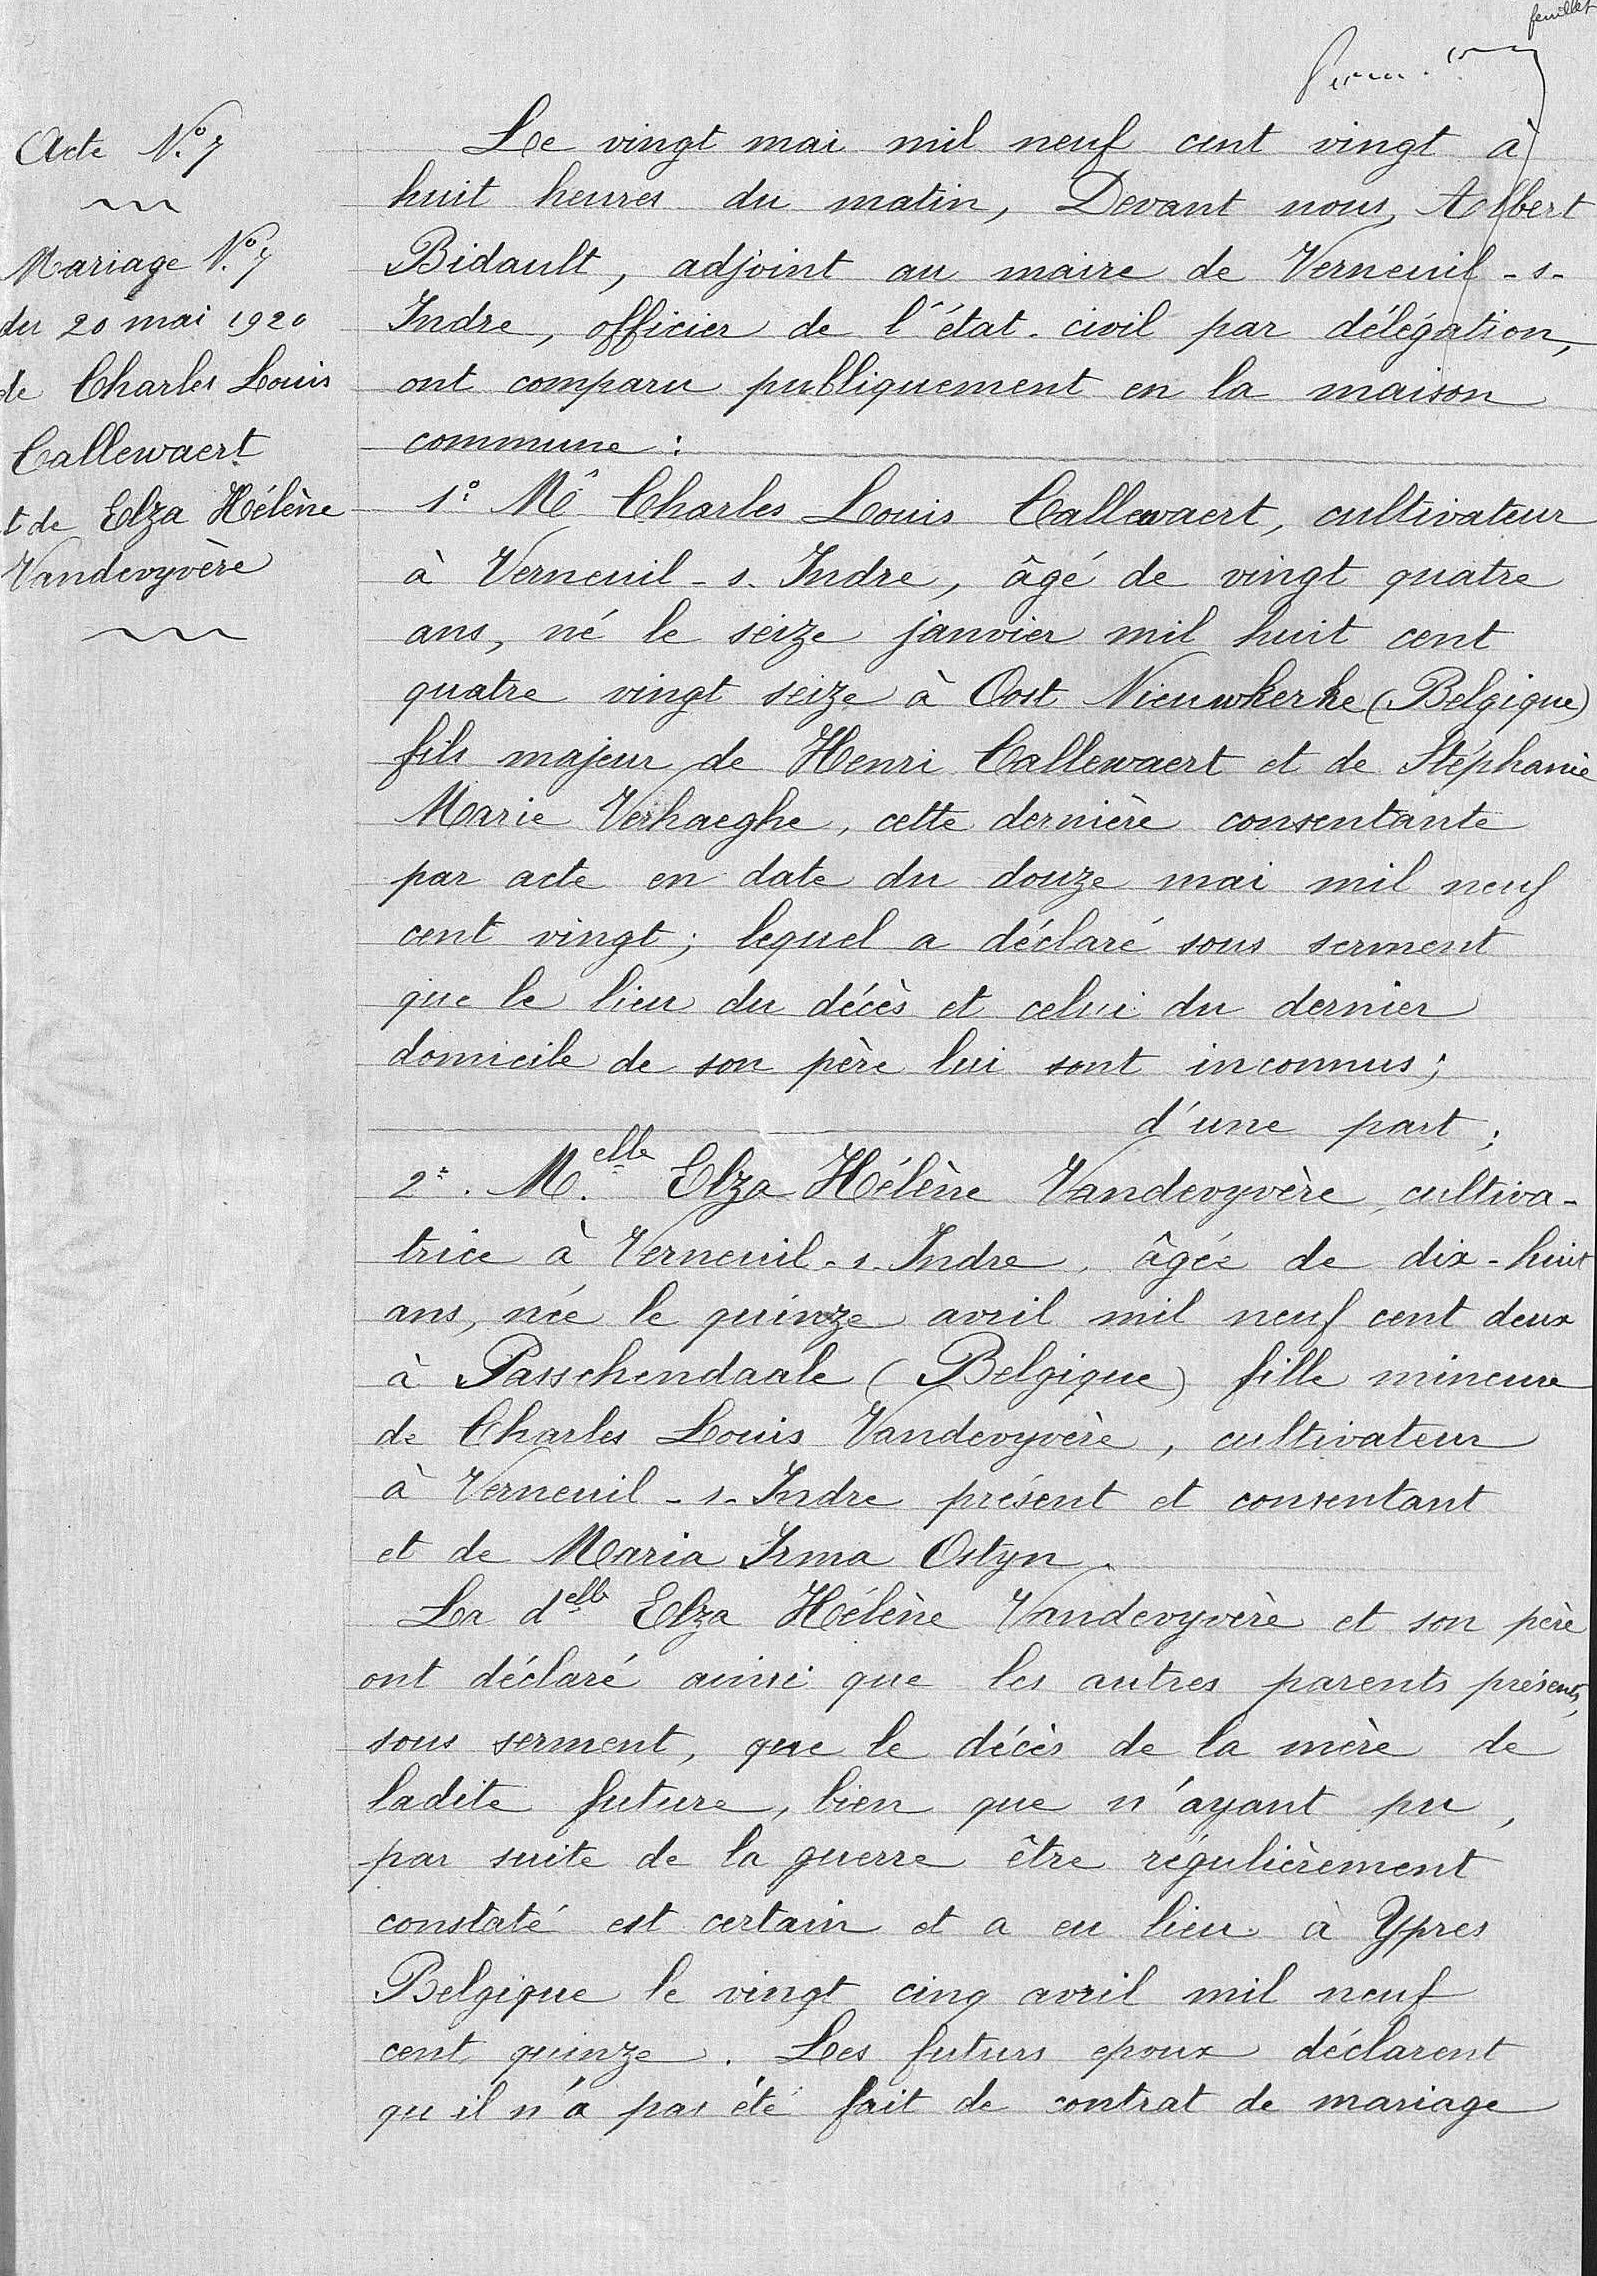 feuillet
Acte N.° 7
Mariage N.° 7
du 20 mai 1920
de Charles Louis
Callewaert
t de Elza Hélène
Vandevyvère
Le vingt mai mil neuf cent vingt à
huit heures du matin, Devant nous, Albert
Bidault, adjoint au maire de Verneuil-s-
Indre, officier de l'état-civil par délégation,
ont comparu publiquement en la maison
commune :
1° Mr Charles Louis Callewaert, cultivateur
à Verneuil-s-Indre, âgé de vingt quatre
ans, né le seize janvier mil huit cent
quatre vingt seize à Oost Nieuwkerke (Belgique)
fils majeur de Henri Callewaert et de Stéphanie
Marie Verhaeghe, cette dernière consentante
par acte en date du douze mai mil neuf
cent vingt; lequel a déclaré sous serment
que le lieu du décès et celui du dernier
domicile de son père lui sont inconnus;
d'une part;
2°. M.elle Elza Hélène Vandevyvère, cultiva-
trice à Verneuil-s-Indre, âgée de dix-huit
ans, née le quinze avril mil neuf cent deux
à Passchendaale (Belgique) fille mineure
de Charles Louis Vandevyvère, cultivateur
à Verneuil-s-Indre présent et consentant
et de Maria Irma Ostyn.
La delle Elza Hélène Vandevyvère et son père
ont déclaré ainsi que les autres parents présents,
sous serment, que le décès de la mère de
ladite future, bien que n'ayant pu,
par suite de la guerre être régulièrement
constaté est certain et a eu lieu à Ypres
Belgique le vingt cinq avril mil neuf
cent quinze. Les futurs epoux déclarent
qu'il n'a pas été fait de contrat de mariage